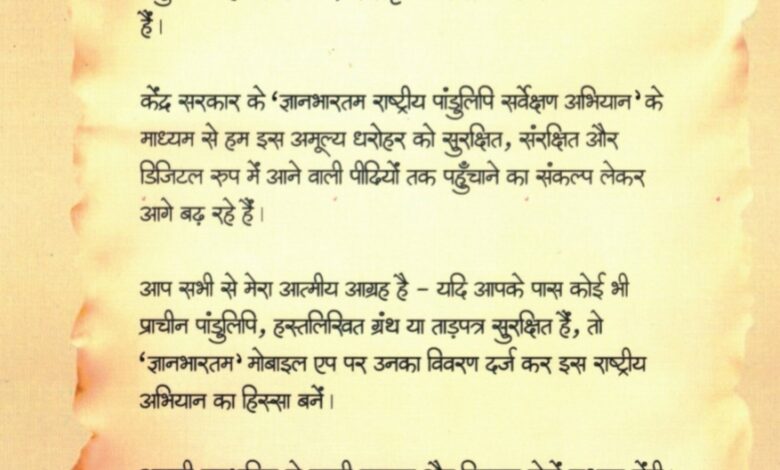 हैं।
केंद्र सरकार के ‘ज्ञानभारतम राष्ट्रीय पांडुलिपि सर्वेक्षण अभियान’ के
माध्यम से हम इस अमूल्य धरोहर को सुरक्षित, संरक्षित और
डिजिटल रुप में आने वाली पीढियों तक पहुँचाने का संकल्प लेकर
आगे बढ़ रहे हैं।
आप सभी से मेरा आत्मीय आग्रह है – यदि आपके पास कोई भी
प्राचीन पांडुलिपि, हस्तलिखित ग्रंथ या ताड़पत्र सुरक्षित हैं, तो
‘ज्ञानभारतम’ मोबाइल एप पर उनका विवरण दर्ज कर इस राष्ट्रीय
अभियान का हिस्सा बनें।